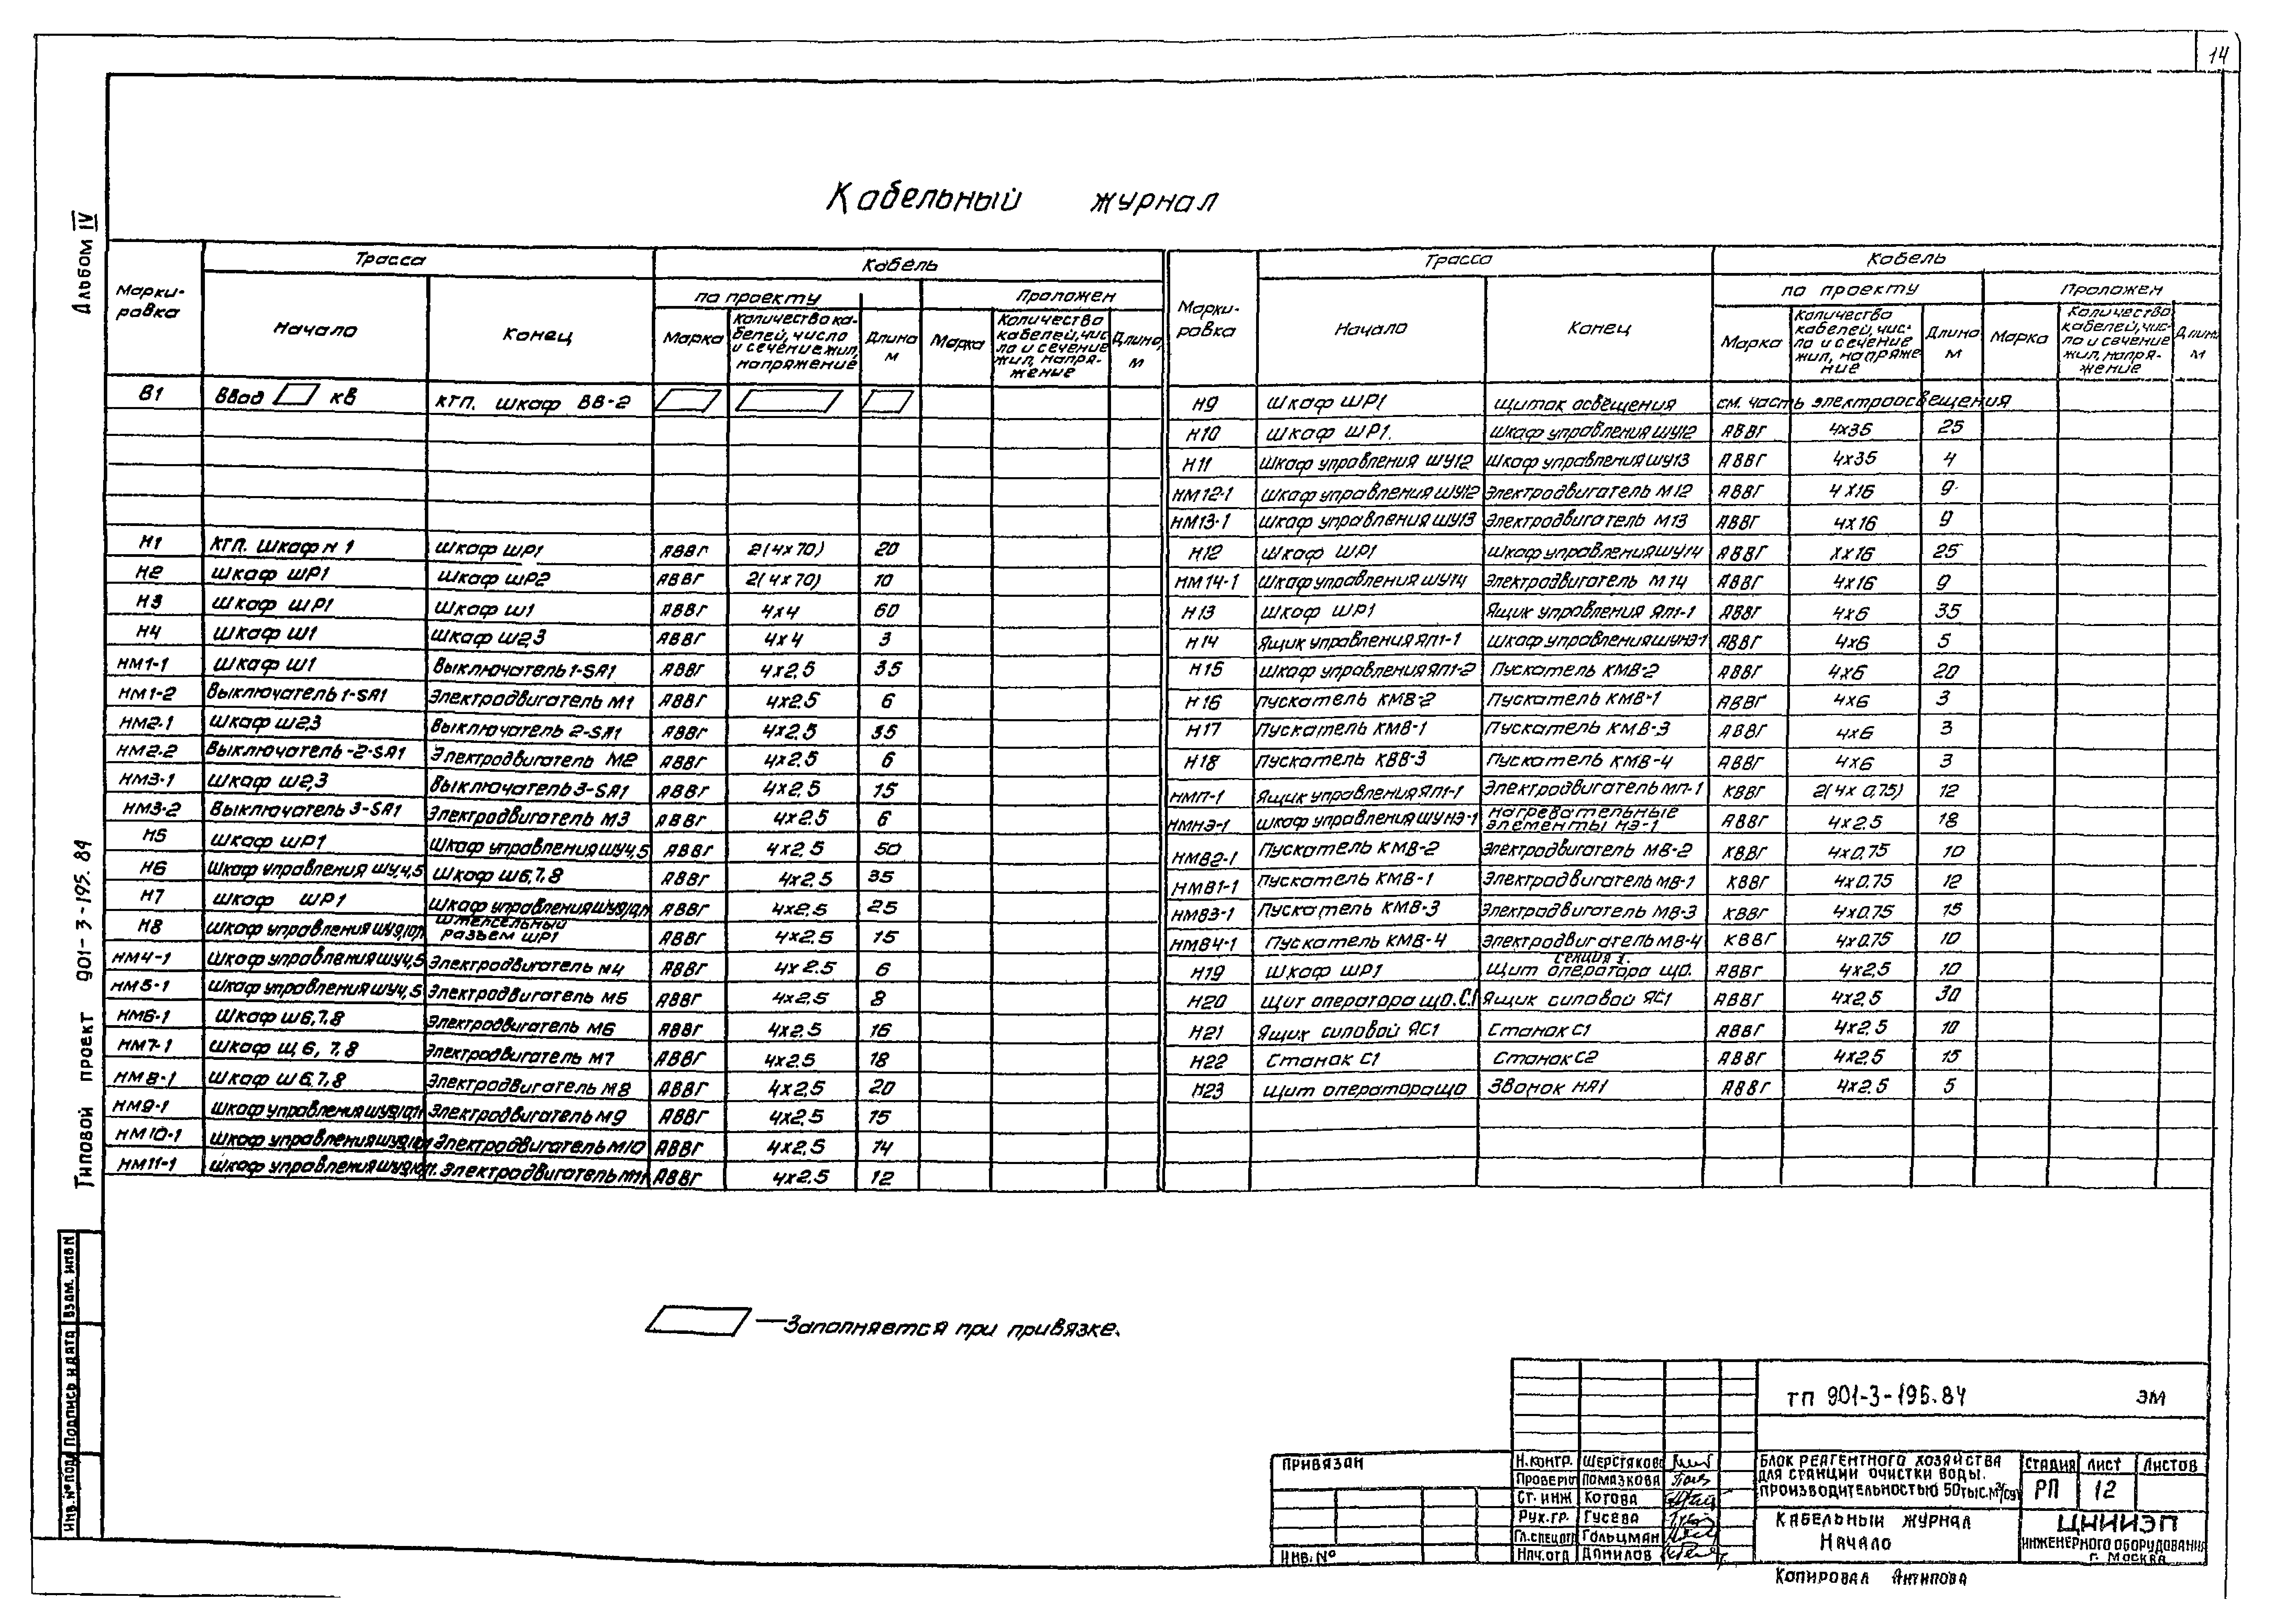 14
Альбом IV
Типовой проект 901-3-195.84
Кабельный журнал
Марки-
ровка
Трасса
Кабель
Начало
Конец
по проекту
Проложен
Марка
Количество ка-
белей, число
и сечение жил,
напряжение
Длина
м
Марка
Количество
кабелей, чис
ло и сечение
жил, напря-
жение
Длина,
м
В1 Ввод кв КТП. шкаф ВВ-2
Н1 КТП. шкаф н 1 Шкаф ШР1 АВВГ 2(4х70) 20
Н2 Шкаф ШР1 Шкаф ШР2 АВВГ 2(4х70) 10
Н3 Шкаф ШР1 Шкаф Ш1 АВВГ 4х4 60
Н4 Шкаф Ш1 Шкаф Ш2,3 АВВГ 4х4 3
НМ1-1 Шкаф Ш1 Выключатель 1-SA1 АВВГ 4х2,5 35
НМ1-2 Выключатель 1-SA1 Электродвигатель М1 АВВГ 4х2.5 6
НМ2.1 Шкаф Ш2,3 Выключатель 2-SA1 АВВГ 4х2,5 35
НМ2.2 Выключатель-2-SA1 Электродвигатель М2 АВВГ 4х2,5 6
НМ3-1 Шкаф Ш2,3 Выключатель 3-SA1 АВВГ 4х2,5 15
НМ3-2 Выключатель 3-SA1 Электродвигатель М3 АВВГ 4х2.5 6
Н5 Шкаф ШР1 Шкаф управления ШУ4,5 АВВГ 4х2,5 50
Н6 Шкаф управления ШУ4,5 Шкаф Ш6,7,8 АВВГ 4х2.5 35
Н7 Шкаф ШР1 Шкаф управления ШУ9,10,11 АВВГ 4х2.5 25
Н8 Шкаф управления ШУ9,10,11 Штепсельный
разъем ШР1 АВВГ 4х2.5 15
НМ4-1 Шкаф управления ШУ4,5 Электродвигатель М4 АВВГ 4х2.5 6
НМ5-1 Шкаф управления ШУ4,5 Электродвигатель М5 АВВГ 4х2.5 8
НМ6-1 Шкаф Ш6,7,8 Электродвигатель М6 АВВГ 4х2.5 16
НМ7-1 Шкаф Щ6, 7,8 Электродвигатель М7 АВВГ 4х2.5 18
НМ8-1 Шкаф Ш6,7,8 Электродвигатель М8 АВВГ 4х2,5 20
НМ9-1 Шкаф управления ШУ9,10,11 Электродвигатель М9 АВВГ 4х2,5 15
НМ10-1 Шкаф управления ШУ9,10,11 Электродвигатель М10 АВВГ 4х2,5 14
НМ11-1 Шкаф управления ШУ9,10,11. Электродвигатель М11 АВВГ 4х2.5 12
Марки-
ровка
Трасса
Кабель
Начало
Конец
по проекту
Проложен
Марка
Количество
кабелей, чис-
ло и сечение
жил, напряже
ние
Длина
м
Марка
Количество
кабелей, чис-
ло и сечение
жил, напря-
жение
Длина
м
Н9 Шкаф ШР1 Щиток освещения см. часть электроосвещения
Н10 Шкаф ШР1. Шкаф управления ШУ12 АВВГ 4х35 25
Н11 Шкаф управления ШУ12 Шкаф управления ШУ13 АВВГ 4х35 4
НМ12-1 Шкаф управления ШУ12 Электродвигатель М12 АВВГ 4х16 9
НМ13-1 Шкаф управления ШУ13 Электродвигатель М13 АВВГ 4х16 9
Н12 Шкаф ШР1 Шкаф управления ШУ14 АВВГ Хх16 25
НМ14-1 Шкаф управления ШУ14 Электродвигатель М14 АВВГ 4х16 9
Н13 Шкаф ШР1 Ящик управления ЯП1-1 АВВГ 4х6 35
Н14 Ящик управления ЯП1-1 Шкаф управления ШУНЭ-1 АВВГ 4х6 5
Н15 Шкаф управления ЯП1-2 Пускатель КМВ-2 АВВГ 4х6 20
Н16 Пускатель КМВ-2 Пускатель КМВ-1 АВВГ 4х6 3
Н17 Пускатель КМВ-1 Пускатель КМВ-3 АВВГ 4х6 3
Н18 Пускатель КВВ-3 Пускатель КМВ-4 АВВГ 4х6 3
НМП-1 Ящик управления ЯП1-1 Электродвигатель МП-1 КВВГ 2(4х 0,75) 12
НМНЭ-1 Шкаф управления ШУНЭ-1 Нагревательные
элементы НЭ-1 АВВГ 4х2.5 18
НМВ2-1 Пускатель КМВ-2 Электродвигатель МВ-2 КВВГ 4х0.75 10
НМВ1-1 Пускатель КМВ-1 Электродвигатель МВ-1 КВВГ 4х0.75 12
НМВ3-1 Пускатель КМВ-3 Электродвигатель МВ-3 КВВГ 4х0.75 15
НМВ4-1 Пускатель КМВ-4 Электродвигатель МВ-4 КВВГ 4х0.75 10
Н19 Шкаф ШР1 секция 1.
Щит оператора ЩО. АВВГ 4х2,5 10
Н20 Щит оператора ЩО.С1 Ящик силовой ЯС1 АВВГ 4х2,5 30
Н21 Ящик силовой ЯС1 Станок С1 АВВГ 4х2.5 10
Н22 Станок С1 Станок С2 АВВГ 4х2,5 15
Н23 Щит оператора ЩО Звонок НА1 АВВГ 4х2.5 5
— Заполняется при привязке.
Инв.№ подл Подпись и дата Взам. инв N
Привязан
Инв. №
Н.контр. Шерстяков
Проверил Помазкова
Ст. инж Котова
Рук.гр. Гусева
Гл.спецотд Гольцман
Нач.отд Данилов
ТП 901-3-195.84 ЭМ
Блок реагентного хозяйства
для станции очистки воды.
производительностью 50тыс.м³/сут
Стадия Лист Листов
РП 12
Кабельный журнал
Начало
ЦНИИЭП
инженерного оборудования
г. Москва
Копировал Антипова